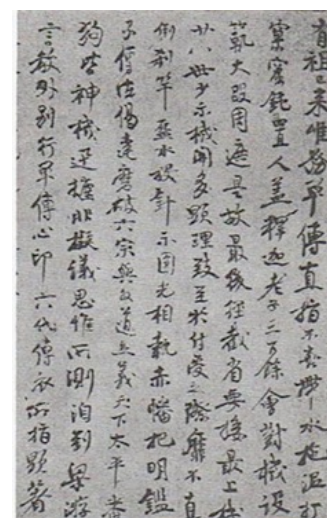 有祖已来唯務單傳直指不喜帶水拖泥打
窠窟鈍置人蓋釋迦老子三百餘會對機設
範大段周遮是故最後徑截省要接最上機
廿八世少示機關多顯理致至於付受之際靡不直
倒刹竿盋水投針示圓光相執赤幡把明鑑
子傳法偈達磨破六宗與外道立義天下太平
狗皆神機迅捷非擬議思惟所測洎到梁游
言教外別行單傳心印六代傳衣所指顯著